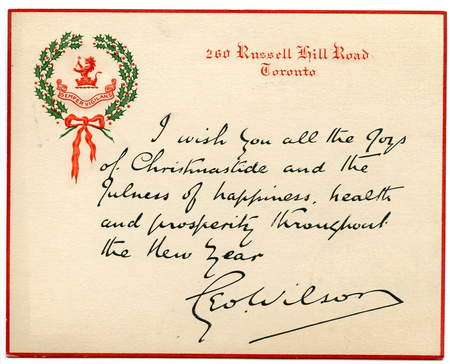 260 Russell Hill Road
Toronto
SEMPER VIGILANS
I wish you all the Joys
of Christmastide and the
fulness of happiness, health
and prosperity throughout
the New Year
Geo. Wilson